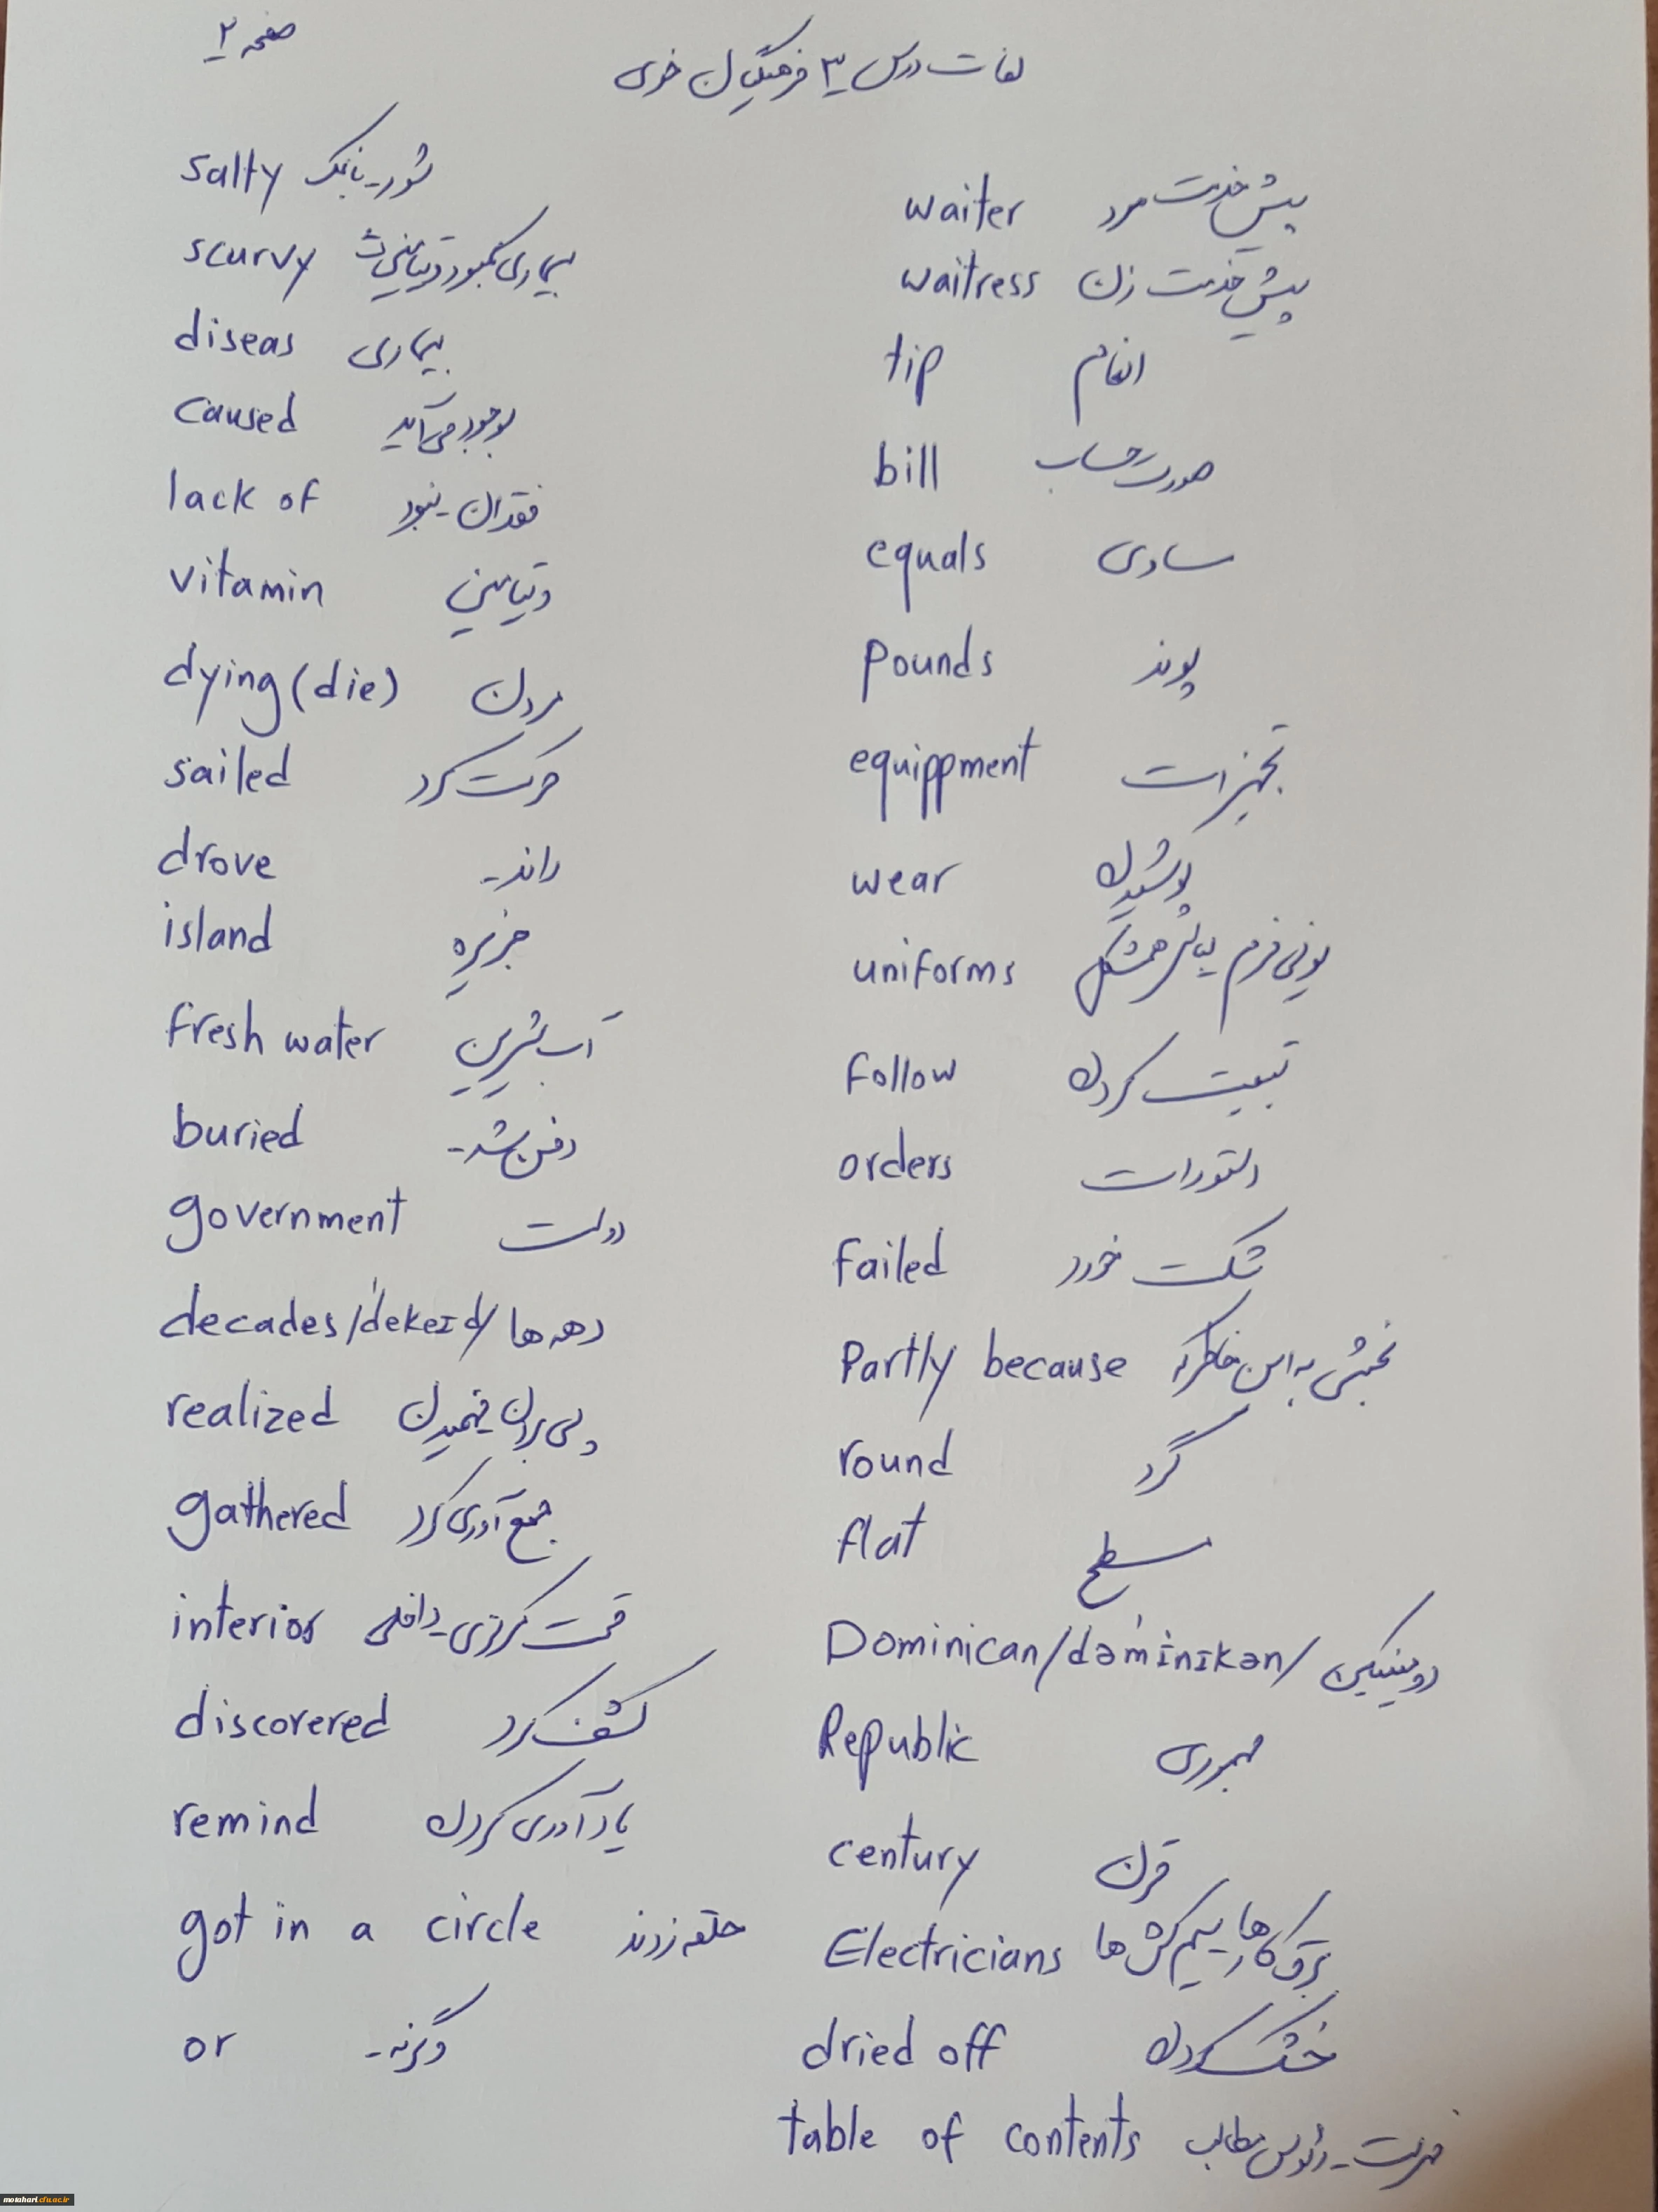 صفحه ۲
لغات درس ۳ فرهنگیان
salty شور - بانمک
scurvy بیماری کمبود ویتامین ث
diseas بیماری
caused بوجود می‌آید
lack of فقدان - نبود
vitamin ویتامین
dying (die) مردن
sailed حرکت کرد
drove راند -
island جزیره
fresh water آب شیرین
buried دفن شد -
government دولت
decades /ˈdekeɪd/ دهه ها
realized پی بردن فهمیدن
gathered جمع آوری کرد
interior قسمت مرکزی - داخلی
discovered کشف کرد
remind یادآوری کردن
got in a circle حلقه زدند
or وگرنه -
waiter پیش خدمت مرد
waitress پیش خدمت زن
tip انعام
bill صورتحساب
equals مساوی
pounds پوند
equippment تجهیزات
wear پوشیدن
uniforms یونی فرم لباس همشکل
follow تبعیت کردن
orders دستورات
failed شکست خورد
Partly because بخشی به این خاطر که
round گرد
flat مسطح
Dominican /dəˈmɪnɪkən/ دومینیکن
Republic جمهوری
century قرن
Electricians برق کارها سیم کش ها
dried off خشک کردن
table of contents فهرست - رئوس مطالب
motahari.cfu.ac.ir